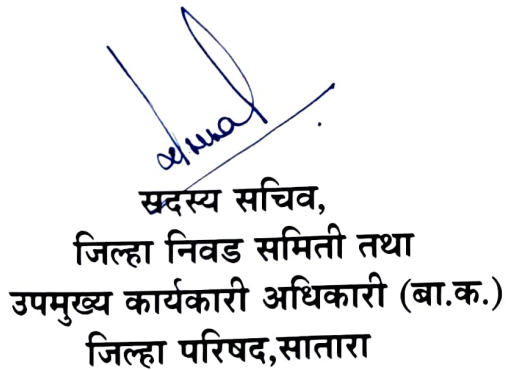 सदस्य सचिव,
जिल्हा निवड समिती तथा
उपमुख्य कार्यकारी अधिकारी (बा.क.)
जिल्हा परिषद,सातारा